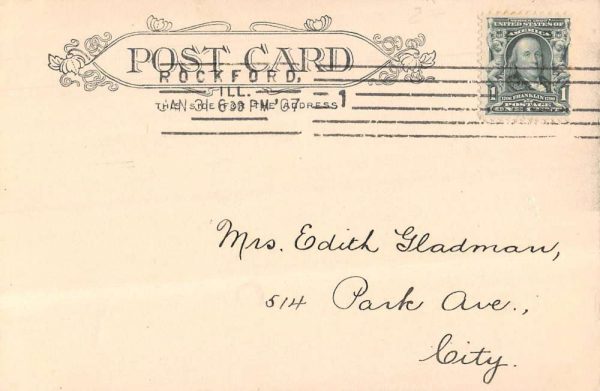 POST CARD
ROCKFORD,
ILL.
JAN 3 6 30 PM '07 1
THIS SIDE FOR THE ADDRESS
UNITED STATES OF
AMERICA
1 1
FRANKLIN
POSTAGE
ONE CENT
Mrs. Edith Gladman,
514 Park Ave.,
City.